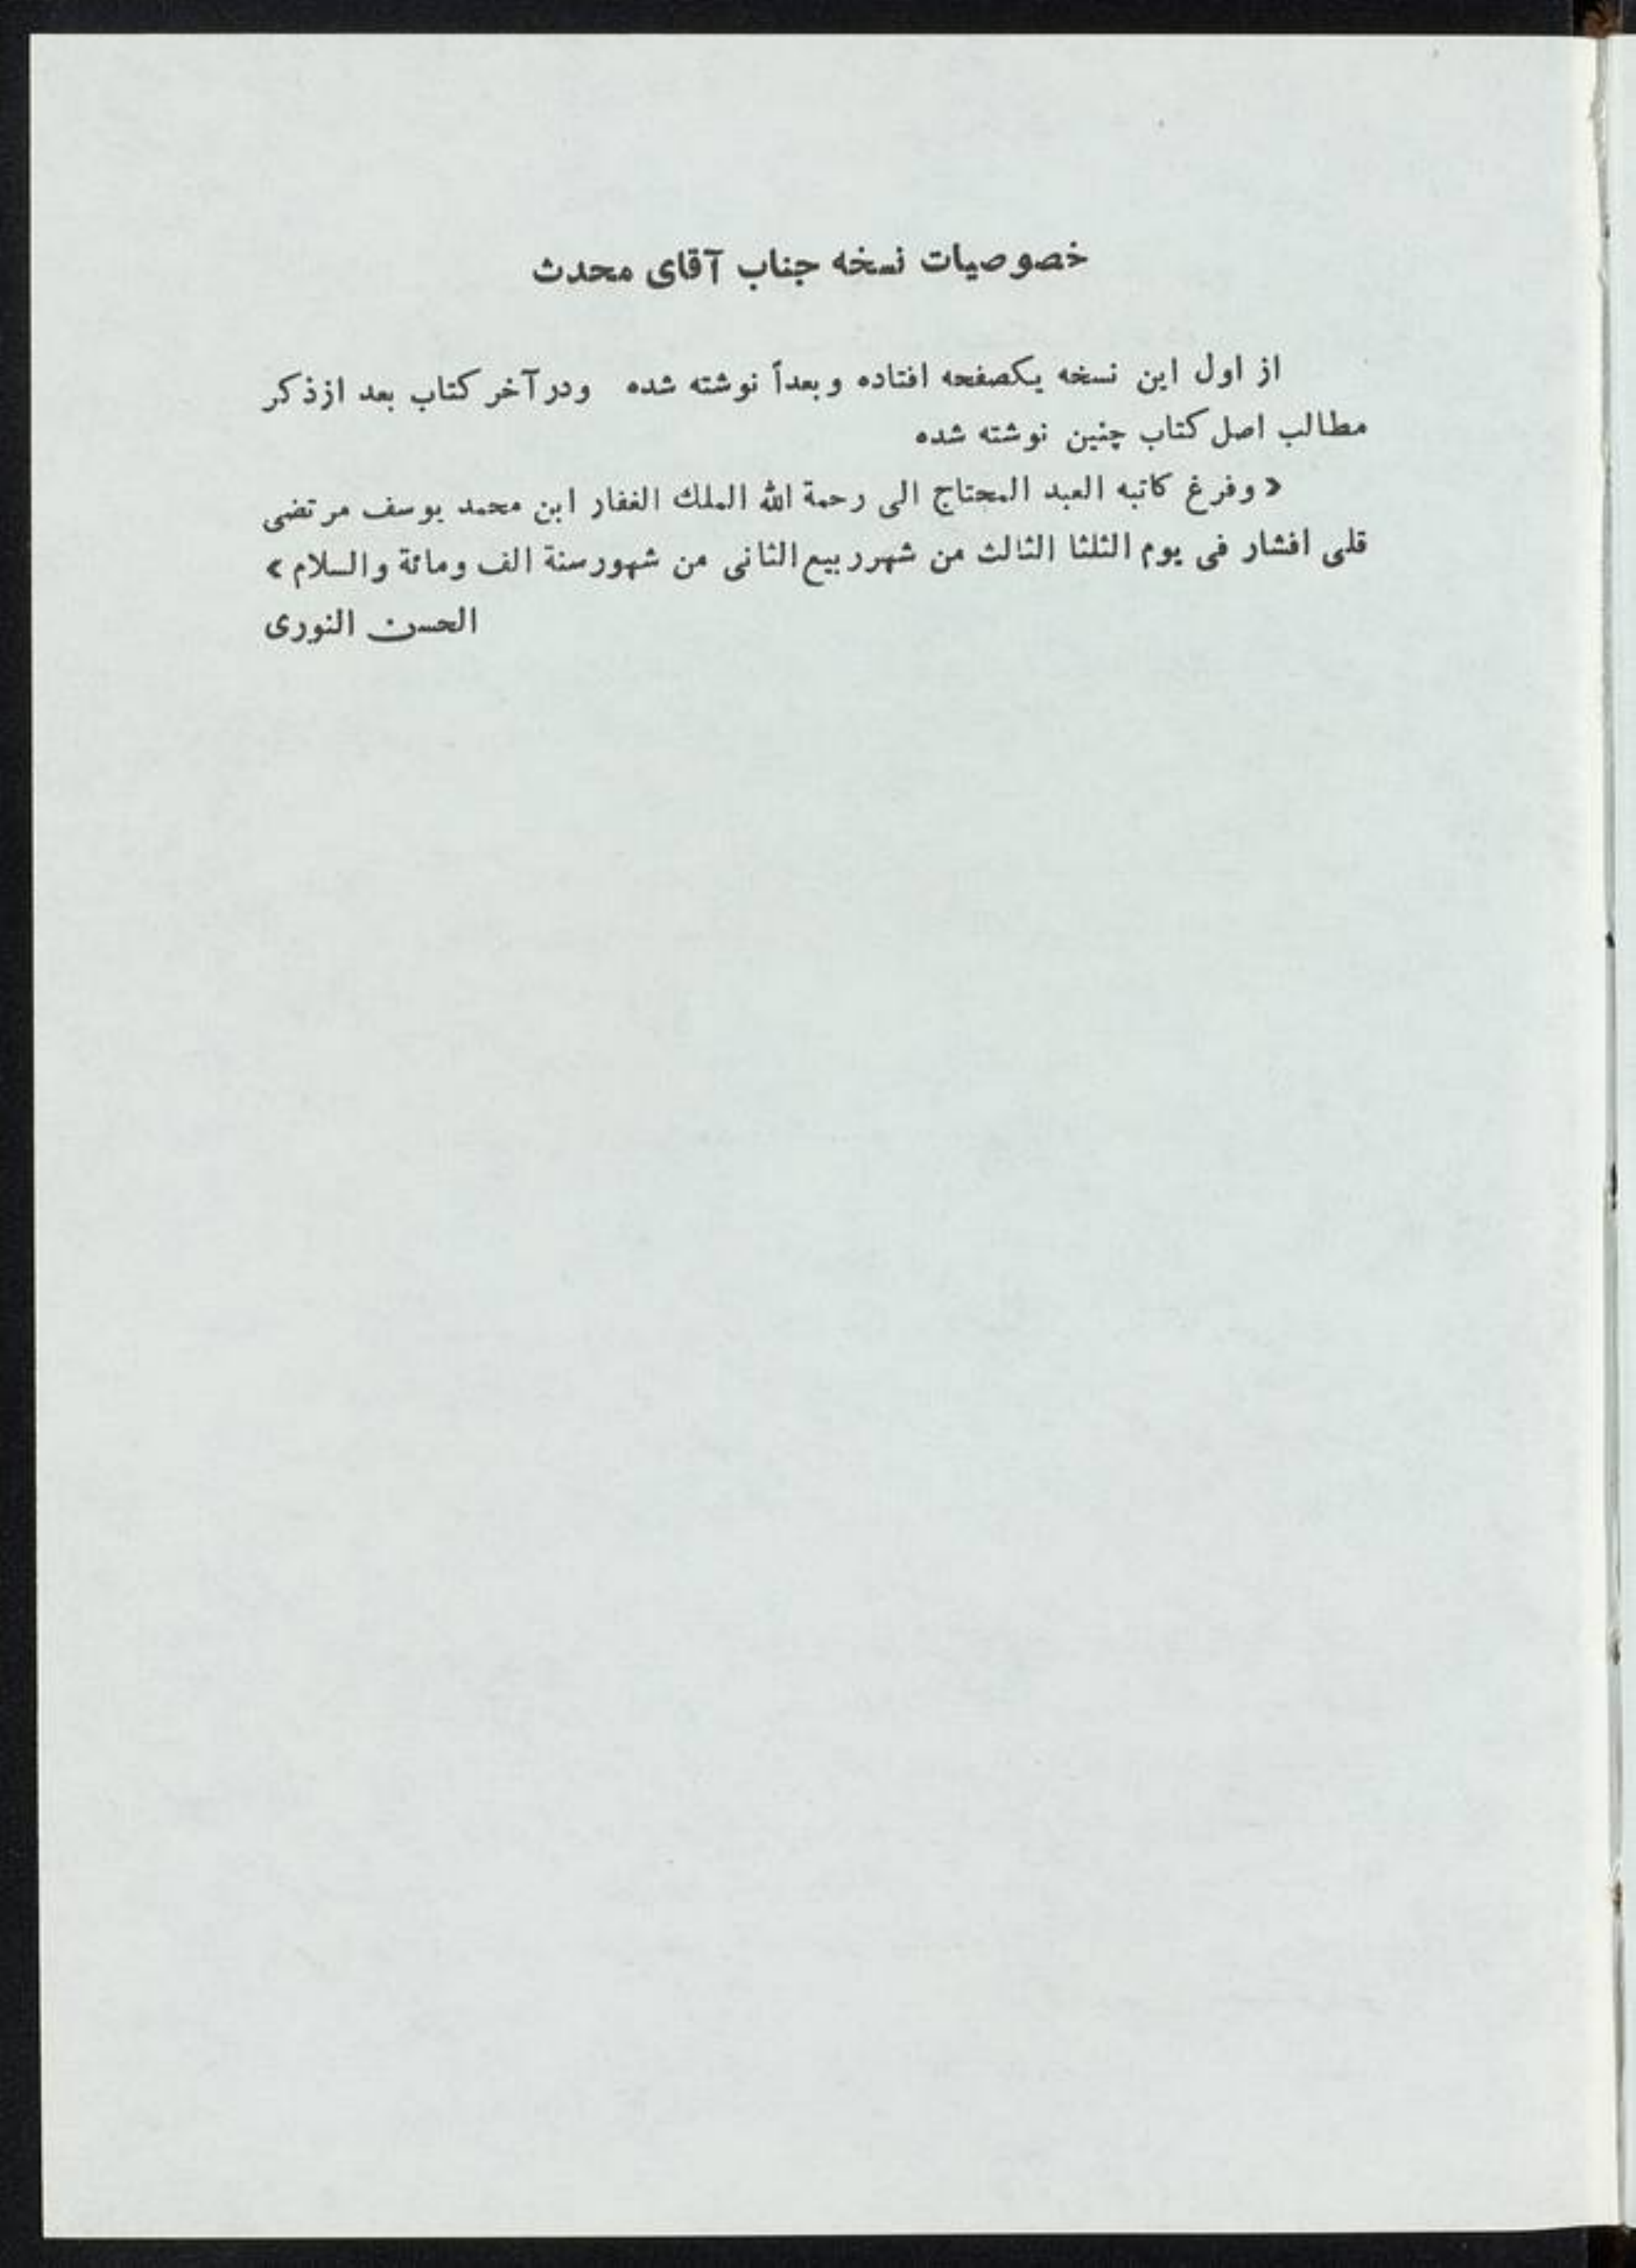 خصوصیات نسخه جناب آقای محدث
از اول این نسخه یکصفحه افتاده وبعداً نوشته شده ودرآخر کتاب بعد ازذکر
مطالب اصل کتاب چنین نوشته شده
« وفرغ کاتبه العبد المحتاج الی رحمة الله الملك الغفار ابن محمد یوسف مرتضی
قلی افشار فی یوم الثلثا الثالث من شهرربیع الثانی من شهورسنة الف ومائة والسلام »
الحسن النوری